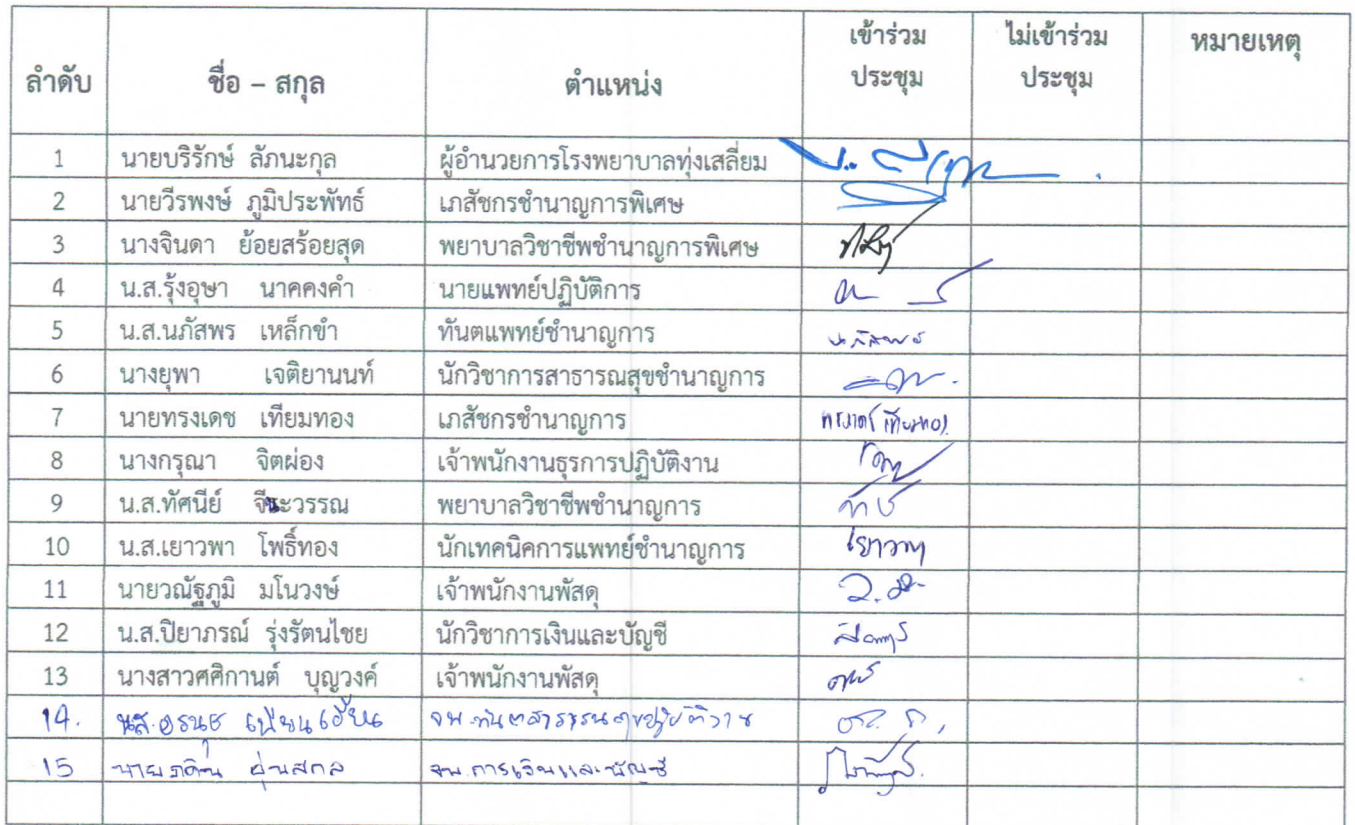 ลำดับ ชื่อ – สกุล ตำแหน่ง เข้าร่วมประชุม ไม่เข้าร่วมประชุม หมายเหตุ
1 นายบริรักษ์ ลัภนะกุล ผู้อำนวยการโรงพยาบาลทุ่งเสลี่ยม
2 นายวีรพงษ์ ภูมิประพัทธ์ เภสัชกรชำนาญการพิเศษ
3 นางจินดา ย้อยสร้อยสุด พยาบาลวิชาชีพชำนาญการพิเศษ
4 น.ส.รุ้งอุษา นาคคงคำ นายแพทย์ปฏิบัติการ
5 น.ส.นภัสพร เหล็กขำ ทันตแพทย์ชำนาญการ นภัสพร
6 นางยุพา เจติยานนท์ นักวิชาการสาธารณสุขชำนาญการ
7 นายทรงเดช เทียมทอง เภสัชกรชำนาญการ ทรงเดช เทียมทอง
8 นางกรุณา จิตผ่อง เจ้าพนักงานธุรการปฏิบัติงาน
9 น.ส.ทัศนีย์ พยาบาลวิชาชีพชำนาญการ
10 น.ส.เยาวพา โพธิ์ทอง นักเทคนิคการแพทย์ชำนาญการ เยาวพา
11 นายวณัฐภูมิ มโนวงษ์ เจ้าพนักงานพัสดุ
12 น.ส.ปิยาภรณ์ รุ่งรัตนไชย นักวิชาการเงินและบัญชี
13 นางสาวศศิกานต์ บุญวงค์ เจ้าพนักงานพัสดุ
14. น.ส.
15 นาย จพ.การเงินและบัญชี